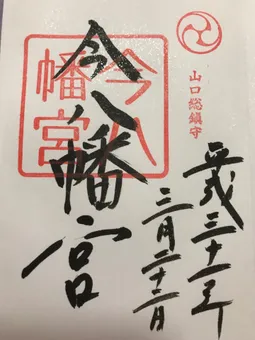 山口総鎮守
平成三十一年
三月二十二日
今八幡宮
今八幡宮